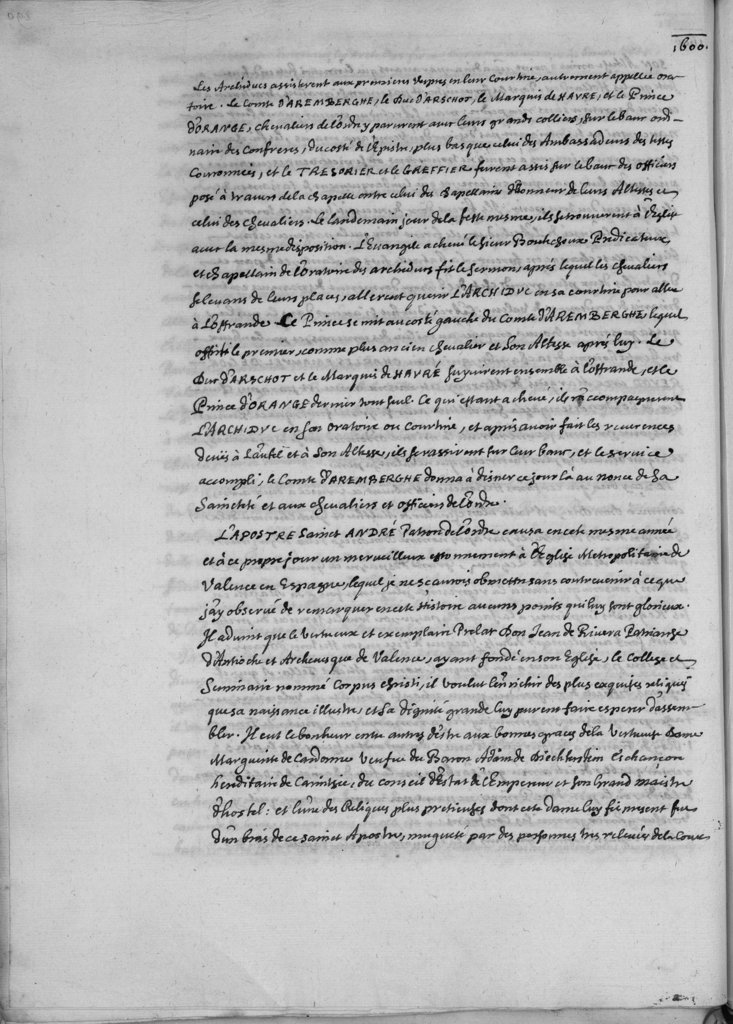 1600.
Les Archiducs assisterent aux premieres vespres en leur Courtine, autrement appellée ora-
toire. Le Comte D'AREMBERGHE, le Duc D'ARSCHOT, le Marquis de HAVRE, et le Prince
D'ORANGE, chevaliers de l'ordre y parurent avec leurs grands colliers, sur le banc ordi-
naire des Confreres, du costé de l'Epistre, plus bas que celui des Ambassadeurs des testes
Couronnées, et le TRESORIER et le GREFFIER furent assis sur le banc des officiers
posé à travers de la chapelle entre celui des chapellains d'honneur de leurs Altesses et
celui des chevaliers. Le landemain jour de la feste mesme, ils se trouverent à l'Eglise
avec la mesme disposition. L'Evangile achevé le sieur Predicateur,
et chapellain de l'oratoire des archiducs fit le sermon, aprés lequel les chevaliers
se levans de leurs places, allerent querir L'ARCHIDVC en sa courtine pour aller
à L'offrande. Ce Prince se mit au costé gauche du Comte D'AREMBERGHE, lequel
offrit le premier, comme plus ancien chevalier et Son Altesse aprés luy. Le
Duc D'ARSCHOT et le Marquis de HAVRÉ suyvirent ensemble à l'offrande, et le
Prince D'ORANGE dernier tout seul. Ce qui estant achevé, ils raccompagnerent
L'ARCHIDVC en son oratoire ou courtine, et aprés avoir fait les reverences
deües à L'autel et à Son Altesse, ils se rassirent sur leur banc, et le service
accompli, le Comte D'AREMBERGHE donna à disner ce jour là au nonce de sa
Saincteté et aux chevaliers et officiers de l'ordre.
L'APOSTRE Sainct ANDRÉ Patron de l'ordre causa en cete mesme année
et à ce propre jour un merveilleux estonnement à l'Eglise Metropolitaine de
Valence en Espagne, lequel je ne scaurois obmettre sans contrevenir à ce que
j'ay observé de remarquer en cete Histoire aucuns points qui luy sont glorieux.
Il advint que le vertueux et exemplaire Prelat Don Jean de Rivera Patriarche
d'Antioche et Archevesque de Valence, ayant fondé en son Eglise, le College et
Seminaire nommé Corpus christi, il voulut l'enrichir des plus exquises reliques
que sa naissance illustre, et sa dignité grande luy peurent faire esperer d'assem-
bler. Il eut le bonheur entre autres d'estre aux bonnes graces de la vertueuse Dame
Marguerite de Cardonne vefue du Baron Adam de Diechtristein Eschançon
hereditaire de Carinthie, du conseil d'Estat de l'Empereur et son Grand maistre
d'hostel: et l'une des Reliques plus pretieuses dont cete Dame luy fit present fut
d'un bras de ce sainct Apostre, mugueté par des personnes tres relevées de la Cour